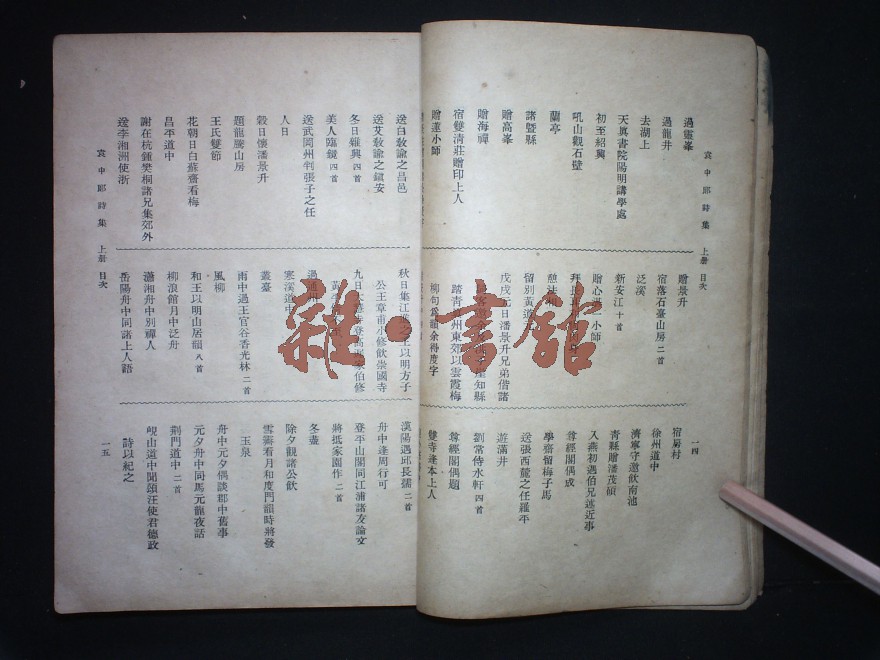 袁中郎詩集 上册 目次
過靈峯
過龍井
去湖上
天眞書院陽明講學處
初至紹興
吼山觀石壁
蘭亭
諸暨縣
贈高峯
贈海禪
宿雙清莊贈印上人
贈蓮小師
贈景升
宿落石臺山房 二首
泛溪
新安江 十首
贈心
小師
拜
憩
留別黃道
戊戌元日潘景升兄弟偕諸
知縣
踏青
州東郊以雲霞梅
柳句爲韻余得度字
一四
宿
村
徐州道中
濟寧守邀飲南池
青縣贈潘茂碩
入燕初遇伯兄述近事
尊經閣偶成
學齋留梅子馬
送張西麓之任羅平
遊滿井
劉常侍水軒 四首
尊經閣偶題
雙寺逢本上人
送白敎諭之昌邑
送艾敎諭之鎮安
冬日雜興 四首
美人臨鏡 四首
送武岡州判張子之任
人日
穀日懷潘景升
題龍驤山房
王氏雙節
花朝日白蘇齋看梅
昌平道中
謝在杭鍾樊桐諸兄集郊外
送李湘洲使浙
袁中郎詩集 上册 目次
秋日集江
上以明方子
公王章甫小修飲崇國寺
九日
登高
伯修
黃
過
寒溪道中
叢臺
雨中過王官谷香光林 二首
風柳
和王以明山居韻 八首
柳浪館月中泛舟
瀟湘舟中別禪人
岳陽舟中同諸上人語
漢陽遇邱長孺 二首
舟中逢周行可
登平山閣同江浦諸友論文
將抵家園作 二首
冬盡
除夕觀諸公飲
雪霽看月和度門韻時將發
玉泉
舟中元夕偶談郡中舊事
元夕舟中同馬元龍夜話
荆門道中 二首
峴山道中聞頌汪使君德政
詩以紀之
一五
雜·書館